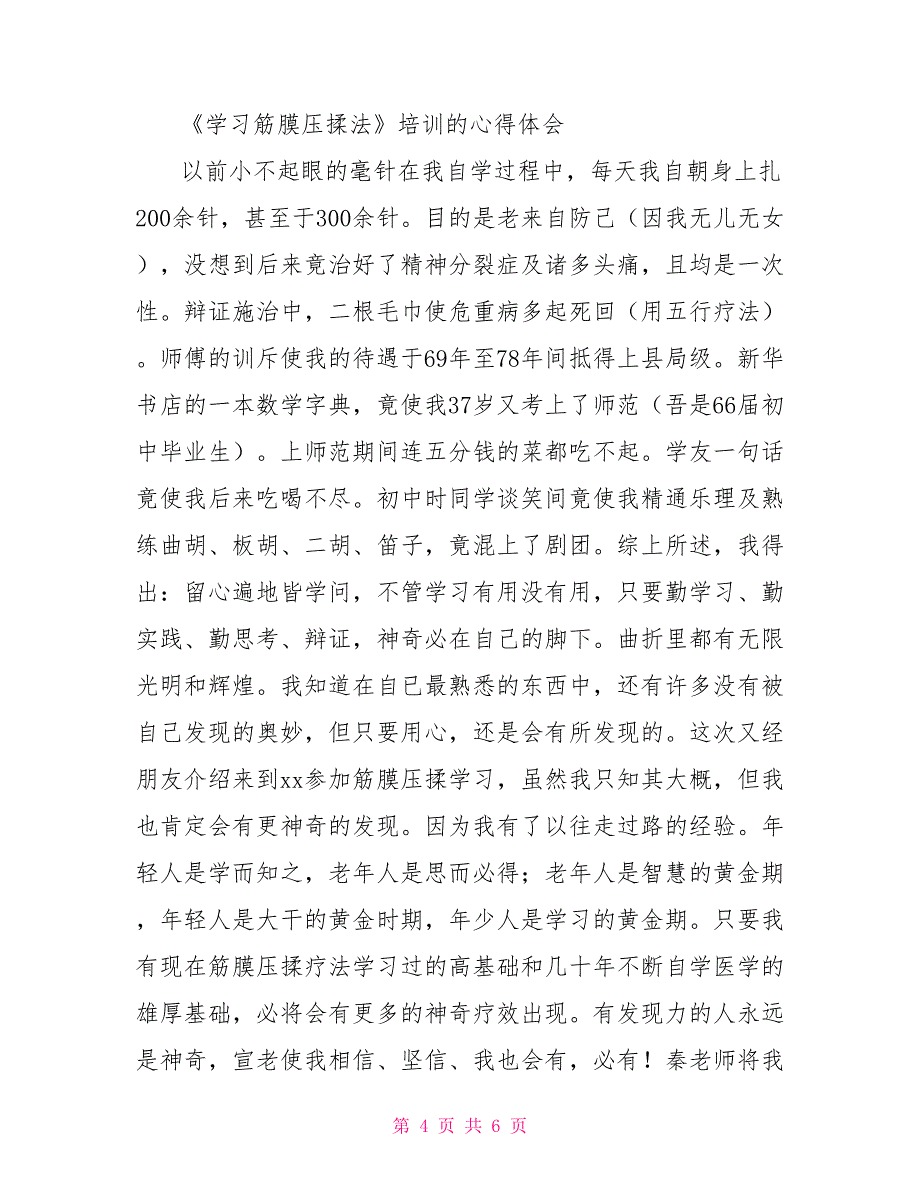 《学习筋膜压揉法》培训的心得体会
以前小不起眼的毫针在我自学过程中，每天我自朝身上扎
200余针，甚至于300余针。目的是老来自防己（因我无儿无女
），没想到后来竟治好了精神分裂症及诸多头痛，且均是一次
性。辩证施治中，二根毛巾使危重病多起死回（用五行疗法）
。师傅的训斥使我的待遇于69年至78年间抵得上县局级。新华
书店的一本数学字典，竟使我37岁又考上了师范（吾是66届初
中毕业生）。上师范期间连五分钱的菜都吃不起。学友一句话
竟使我后来吃喝不尽。初中时同学谈笑间竟使我精通乐理及熟
练曲胡、板胡、二胡、笛子，竟混上了剧团。综上所述，我得
出：留心遍地皆学问，不管学习有用没有用，只要勤学习、勤
实践、勤思考、辩证，神奇必在自己的脚下。曲折里都有无限
光明和辉煌。我知道在自已最熟悉的东西中，还有许多没有被
自己发现的奥妙，但只要用心，还是会有所发现的。这次又经
朋友介绍来到xx参加筋膜压揉学习，虽然我只知其大概，但我
也肯定会有更神奇的发现。因为我有了以往走过路的经验。年
轻人是学而知之，老年人是思而必得；老年人是智慧的黄金期
，年轻人是大干的黄金时期，年少人是学习的黄金期。只要我
有现在筋膜压揉疗法学习过的高基础和几十年不断自学医学的
雄厚基础，必将会有更多的神奇疗效出现。有发现力的人永远
是神奇，宣老使我相信、坚信、我也会有，必有！秦老师将我
第 4 页 共 6 页